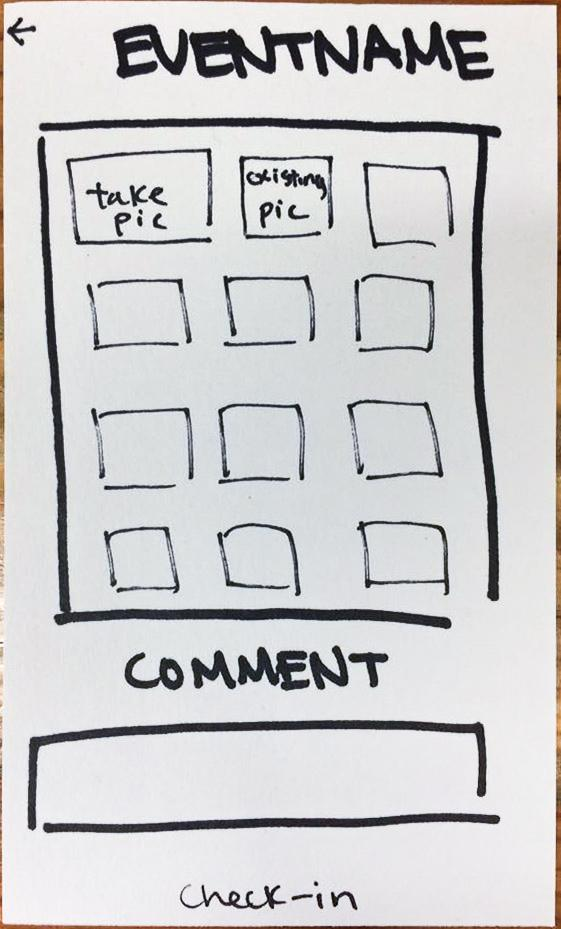 EVENTNAME
take
pic
existing
pic
COMMENT
check-in